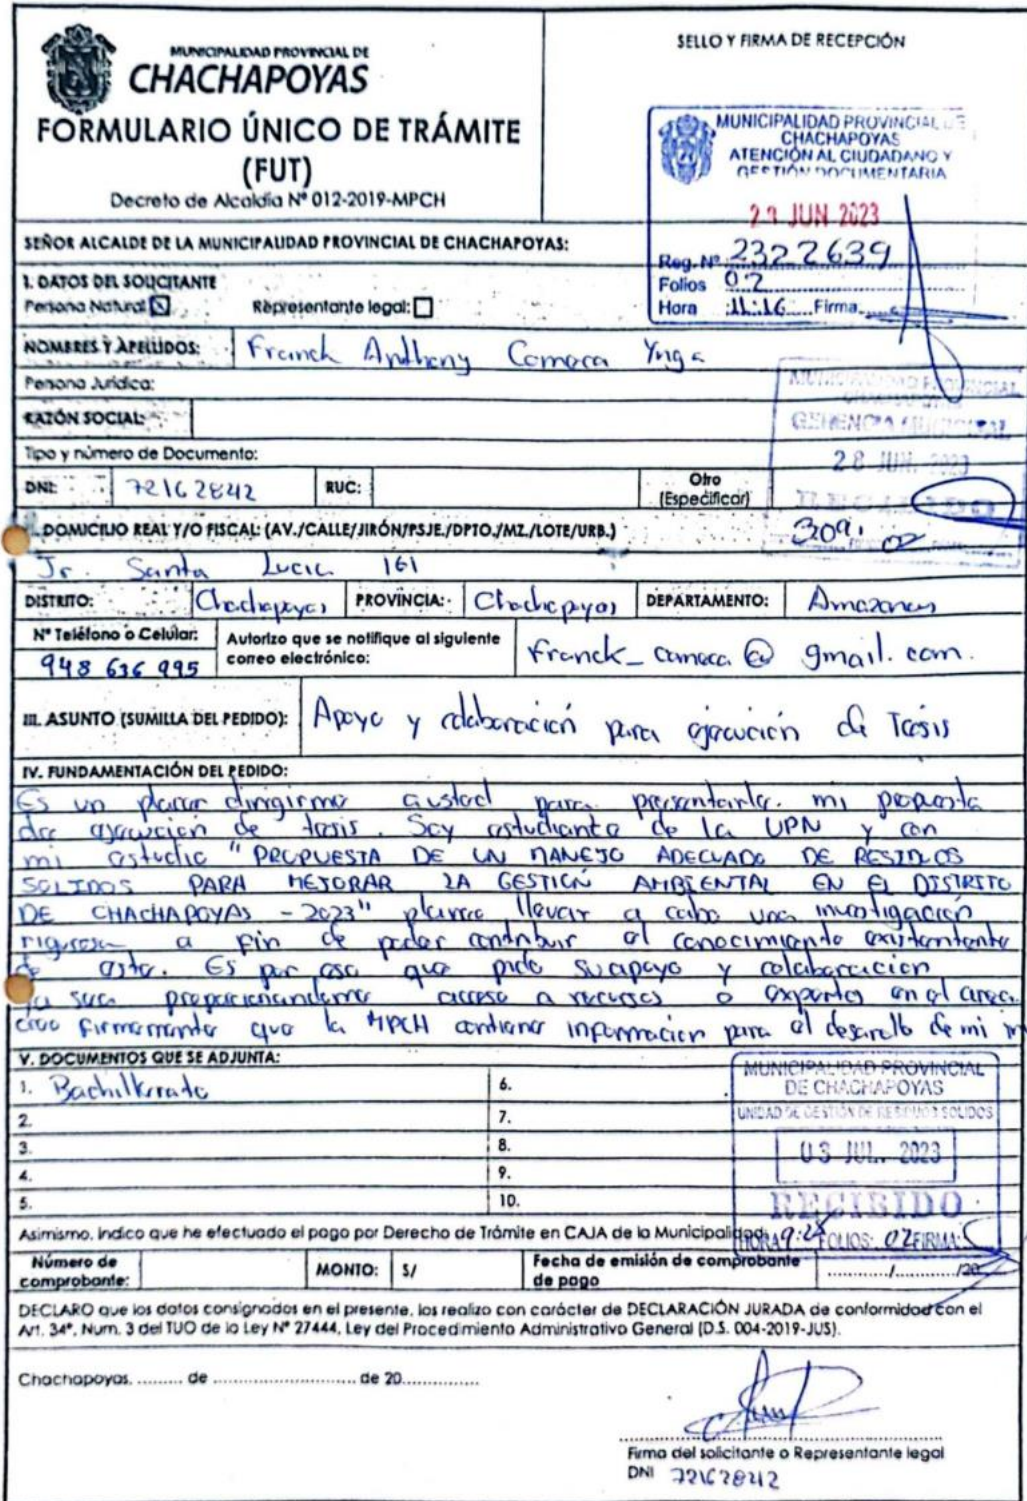 MUNICIPALIDAD PROVINCIAL DE
CHACHAPOYAS
FORMULARIO ÚNICO DE TRÁMITE
(FUT)
Decreto de Alcaldía Nº 012-2019-MPCH
SELLO Y FIRMA DE RECEPCIÓN
MUNICIPALIDAD PROVINCIAL DE
CHACHAPOYAS
ATENCIÓN AL CIUDADANO Y
GESTIÓN DOCUMENTARIA
JUN 2023
Reg. Nº 2322639
Folios 02
Hora 11:16 Firma
SEÑOR ALCALDE DE LA MUNICIPALIDAD PROVINCIAL DE CHACHAPOYAS:
I. DATOS DEL SOLICITANTE
Persona Natural: Representante legal:
NOMBRES Y APELLIDOS: Franck Anthony Comaca Ynga
MUNICIPALIDAD PROVINCIAL
CHACHAPOYAS
GERENCIA MUNICIPAL
28 JUN. 2023
RECIBIDO
Persona Jurídica:
RAZÓN SOCIAL:
Tipo y número de Documento:
DNI: 72162842 RUC: Otro
(Especificar)
II. DOMICILIO REAL Y/O FISCAL: (AV./CALLE/JIRÓN/PSJE./DPTO./MZ./LOTE/URB.)
02
Jr. Santa Lucia 161
DISTRITO: Chachapoyas PROVINCIA: Chachapoyas DEPARTAMENTO: Amazonas
Nº Teléfono o Celular: 948 636 995
Autorizo que se notifique al siguiente
correo electrónico: franck_comaca@gmail.com.
III. ASUNTO (SUMILLA DEL PEDIDO): Apoyo y colaboración para ejecución de Tesis
IV. FUNDAMENTACIÓN DEL PEDIDO:
Es un placer dirigirme a usted para presentarle mi propuesta
de ejecución de tesis. Soy estudiante de la UPN y con
mi estudio "PROPUESTA DE UN MANEJO ADECUADO DE RESIDUOS
SOLIDOS PARA MEJORAR LA GESTIÓN AMBIENTAL EN EL DISTRITO
DE CHACHAPOYAS - 2023" planeo llevar a cabo una investigación
rigurosa a fin de poder contribuir al conocimiento existentente
de este. Es por eso que pido su apoyo y colaboración
ya sea proporcionandome acceso a recursos o expertos en el area.
creo firmemente que la MPCH contiene información para el desarollo de mi in
V. DOCUMENTOS QUE SE ADJUNTA:
1. Bachillerato 6.
2. 7.
3. 8.
4. 9.
5. 10.
MUNICIPALIDAD PROVINCIAL
DE CHACHAPOYAS
UNIDAD DE GESTIÓN DE RESIDUOS SOLIDOS
03 JUL. 2023
RECIBIDO
HORA 9:25 FOLIOS: 02 FIRMA:
Asimismo, indico que he efectuado el pago por Derecho de Trámite en CAJA de la Municipalidad:
Número de
comprobante: MONTO: S/ Fecha de emisión de comprobante
de pago ............/............/20
DECLARO que los datos consignados en el presente, los realizo con carácter de DECLARACIÓN JURADA de conformidad con el
Art. 34º, Num. 3 del TUO de la Ley Nº 27444, Ley del Procedimiento Administrativo General (D.S. 004-2019-JUS).
Chachapoyas, ......... de ............................ de 20...............
Firma del solicitante o Representante legal
DNI 72162842